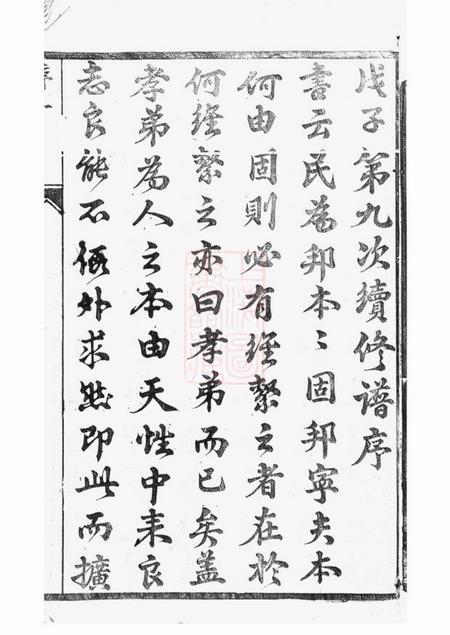 戊子第九次續修譜序
書云民為邦本〻固邦寧夫本
何由固則必有經繫之者在於
何經繫之亦曰孝弟而已矣蓋
孝弟為人之本由天性中来良
志良能不假外求然即此而擴